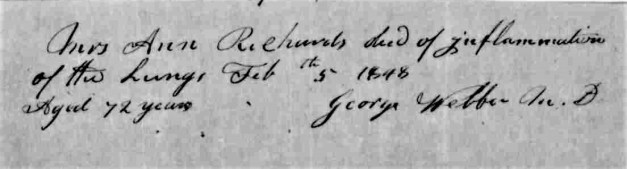 Mrs Ann Richards died of inflammation
of the Lungs Feb 5th 1848
Aged 72 years
George Webber M. D